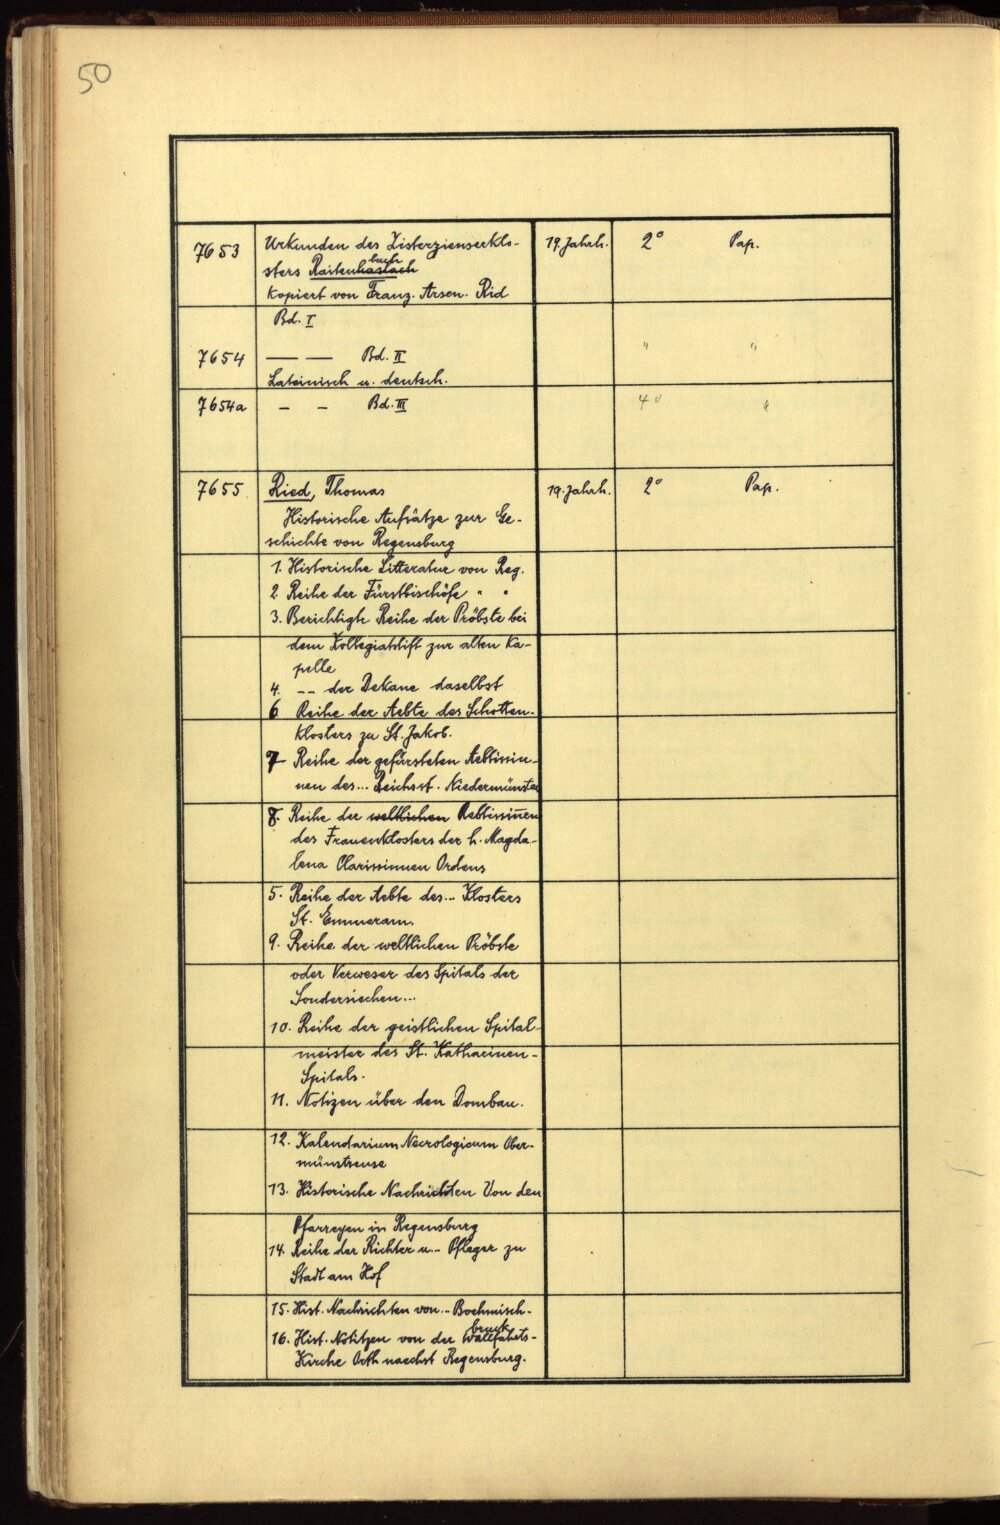 50
7653 Urkunden des Zisterzienserklo- 19. Jahrh. 2° Pap.
buch
sters Raitenhaslach
kopiert von Franz. Arsen. Rid
Bd. I
7654 — — Bd. II " "
Lateinisch u. deutsch.
7654a – – Bd. III 4° "
7655 Ried, Thomas 19. Jahrh. 2° Pap.
Historische Aufsätze zur Ge-
schichte von Regensburg
1. Historische Litteratur von Reg.
2. Reihe der Fürstbischöfe " "
3. Berichtigte Reihe der Pröbste bei
dem Kollegiatstift zur alten Ka-
pelle
4. -- der Dekane daselbst
6 Reihe der Aebte des Schotten-
klosters zu St. Jakob.
7 Reihe der gefürsteten Aebtissin-
nen des... Reichsst. Niedermünster
8. Reihe der weltlichen Aebtissin̅en
des Frauenklosters der h. Magda-
lena Clarissinnen Ordens
5. Reihe der Aebte des... Klosters
St. Emmeram.
9. Reihe der weltlichen Pröbste
oder Verweser des Spitals der
Sondersiechen...
10. Reihe der geistlichen Spital-
meister des St. Katharinen-
Spitals.
11. Notizen über den Dombau.
12. Kalendarium Necrologicum Ober-
münstrense
13. Historische Nachrichten Von den
Pfarreyen in Regensburg
14. Reihe der Richter u– Pfleger zu
Stadt am Hof
15. Hist. Nachrichten von.. Boehmisch-
bruck
16. Hist. Notitzen von der Wallfahrts-
Kirche Orth naechst Regensburg.